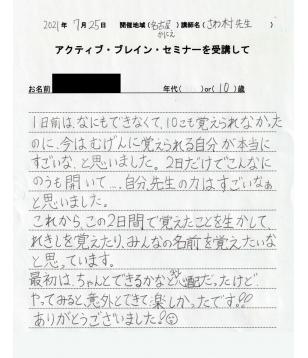 2021年 7月25日 開催地域(名古屋 かにえ)講師名(さわ村先生)
アクティブ・ブレイン・セミナーを受講して
お名前 年代( )or(10)歳
1日前は、なにもできなくて、10こも覚えられなかった
のに、今はむげんに覚えられる自分が本当に
すごいな、と思いました。2日だけでこんなに
のうも開いて...、自分、先生の力はすごいなぁ
と思いました。
これから、この2日間で覚えたことを生かして、
れきしを覚えたり、みんなの名前を覚えたいな
と思っています。
最初は、ちゃんとできるかなと心配だったけど
やってみると、意外とできて、楽しかったです!!
ありがとうございました!☺